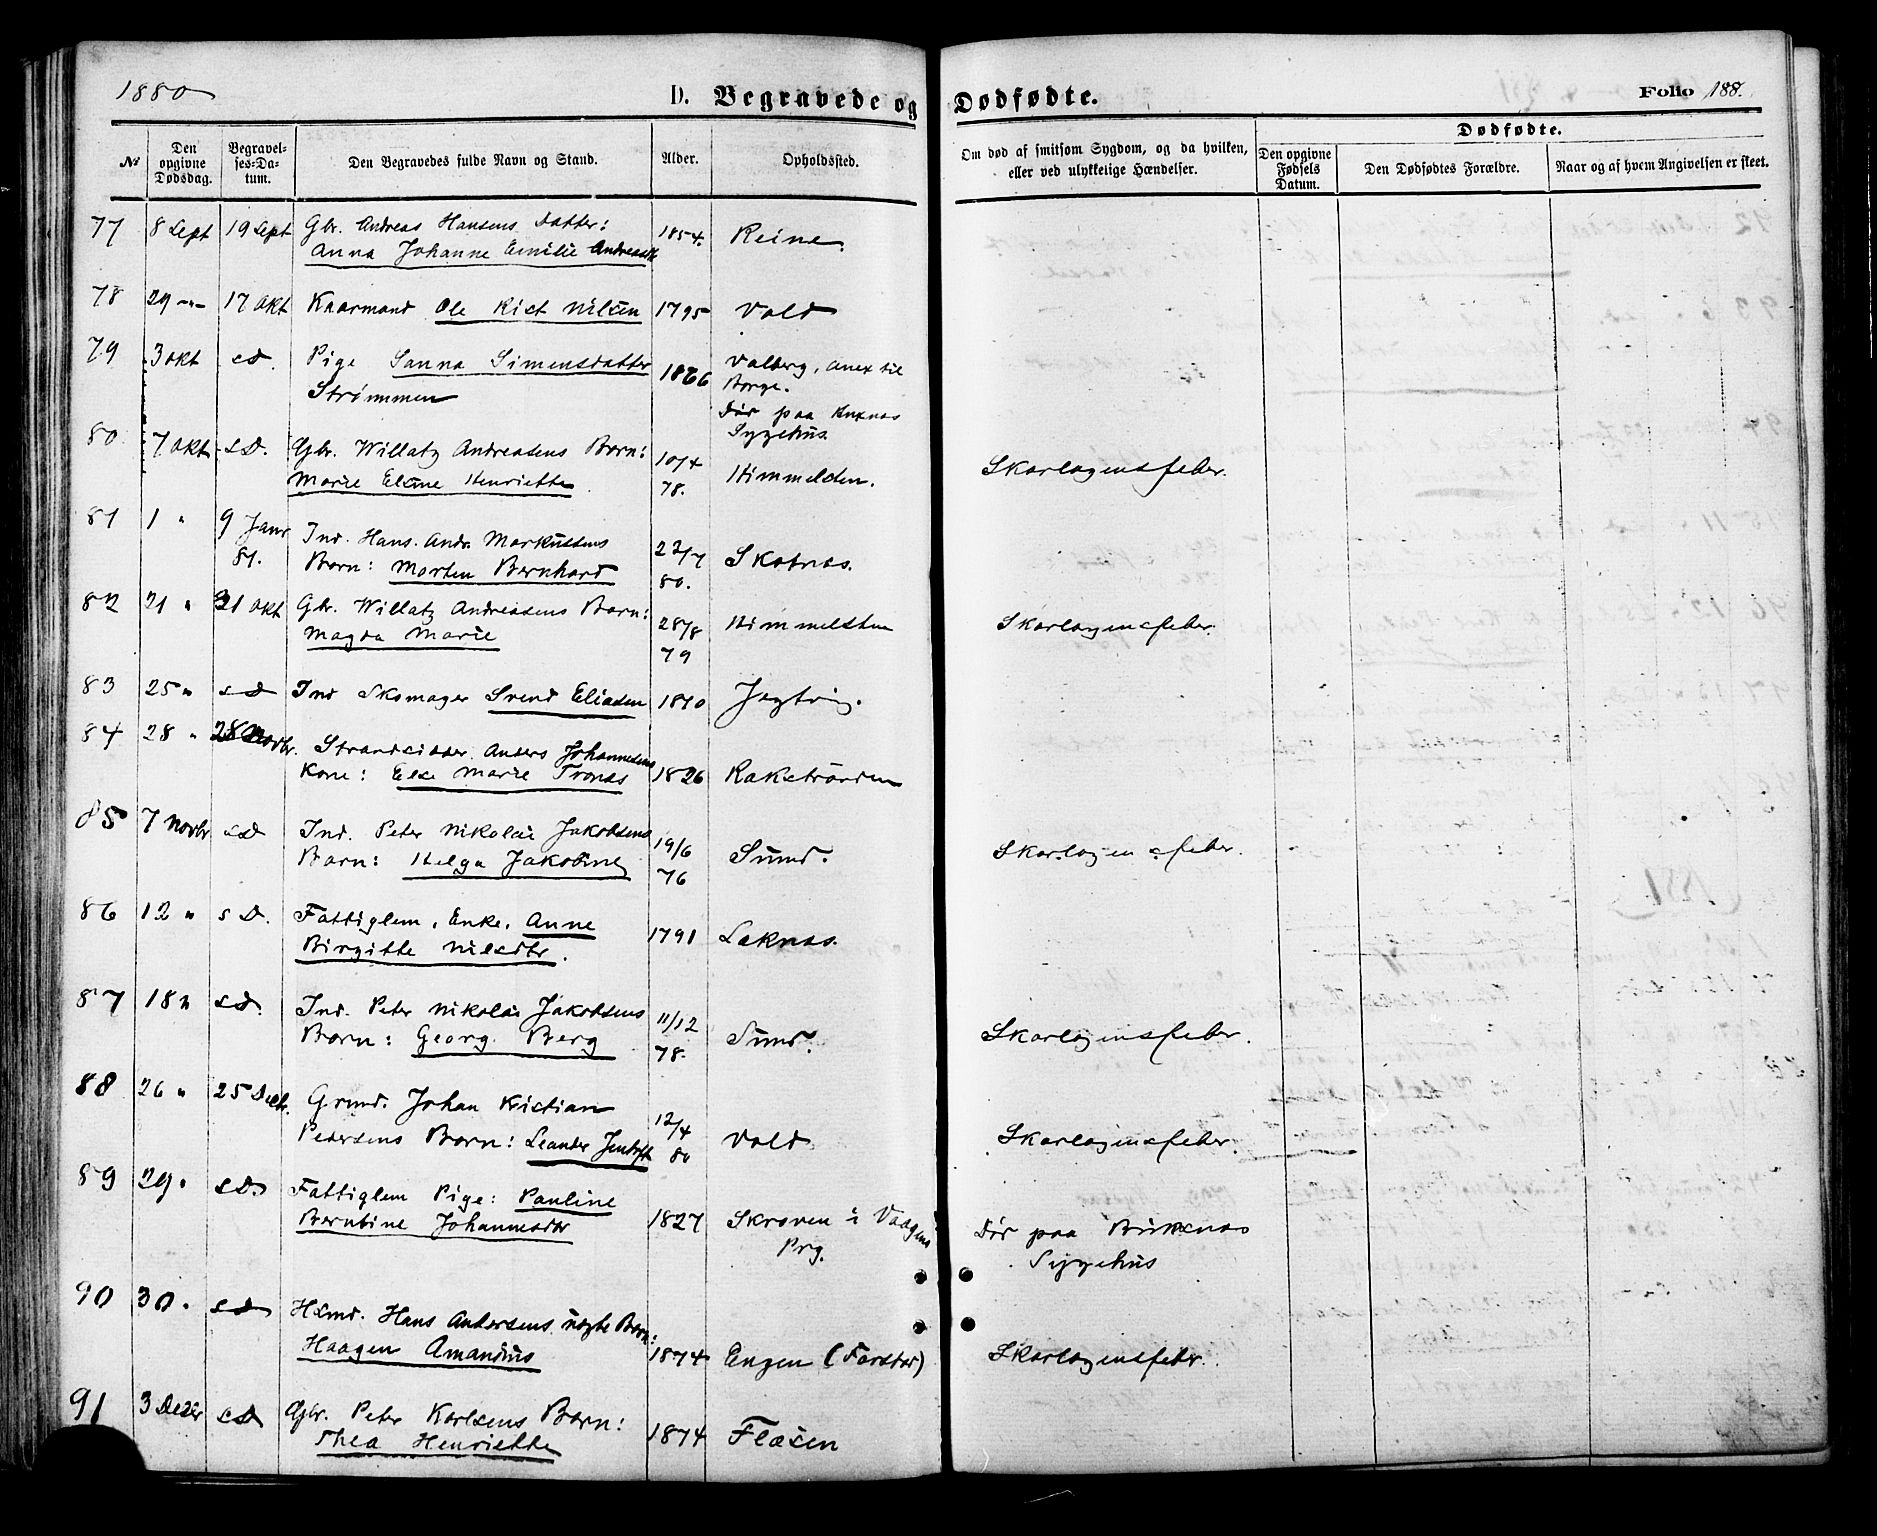 1880
D. Begravede og Dødfødte.
Folio 188.
№
Den opgivne Dødsdag.
Begravelses-Datum.
Den Begravedes fulde Navn og Stand.
Alder.
Opholdssted.
Om død af smitsom Sygdom, og da hvilken, eller ved ulykkelige Hændelser.
Dødfødte.
Den opgivne Fødsels Datum.
Den Dødfødtes Forældre.
Naar og af hvem Angivelsen er skeet.
77 8 Sept 19 Sept Gbr. Andreas Hansens Datter: 1854. Reine.
Anna Johanne Emilie
78 29 -"- 17 Okt Kaarmand Ole Rist Nilsen 1795 Vold
79 3 Okt s.D. Pige Sanna Simensdatter 1866 Valberg, Anex til
Strømmen Borge.
Dør paa
Sygehus.
80 7 Okt s.D. Gbr. Willatz Andreasens Barn: 10/4 Himmelsten. Skarlagensfeber.
Marie Eline Henriette 78.
81 1 " 9 Janr Ind. Hans. Andr. Markussens 22/7 Skotnæs.
81. Barn: Morten Bernhard 80.
82 21 " 31 Okt Gbr. Willatz Andreasens Barn: 28/8 Himmelsten Skarlagensfeber.
Magda Marie 79
83 25 " s.D Ind Skomager Svend Eliasen 1810
84 28 " 28 Novbr. Strandsidder Anders Johannesens
Kone: Else Marie Tronds 1826 Rakstranden
85 7 Novbr s.D Ind. Peter Nikolai Jakobsens 19/6 Sund. Skarlagensfeber.
Barn: Helga Jakobine 76
86 12 " s.D. Fattiglem, Enke, Anne 1791 Leknæs.
Birgitte Nilsdtr.
87 18 " s.D. Ind. Peter Nikolai Jakobsens 11/12 Sund. Skarlagensfeber.
Barn: Georg Berg 78.
88 26 " 25 Decbr. Grund. Johan Kistian 12/4 Vold Skarlagensfeber.
Pedersens Barn: Leander Jentoft 80
89 29 " s.D. Fattiglem Pige: Pauline 1827 Skroven i Vaagens Dør paa Buksnæs
Bernbine Johannesdtr Prg. Sygehus
90 30 " s.D Hsmd. Hans Andersens uægte Barn:
Haagen Amandus 1874 Engen (Farstad) Skarlagensfeber.
91 3 Dezbr s.D Gbr. Peter Karlsens Barn: 1874 Flæsen
Thea Henriette